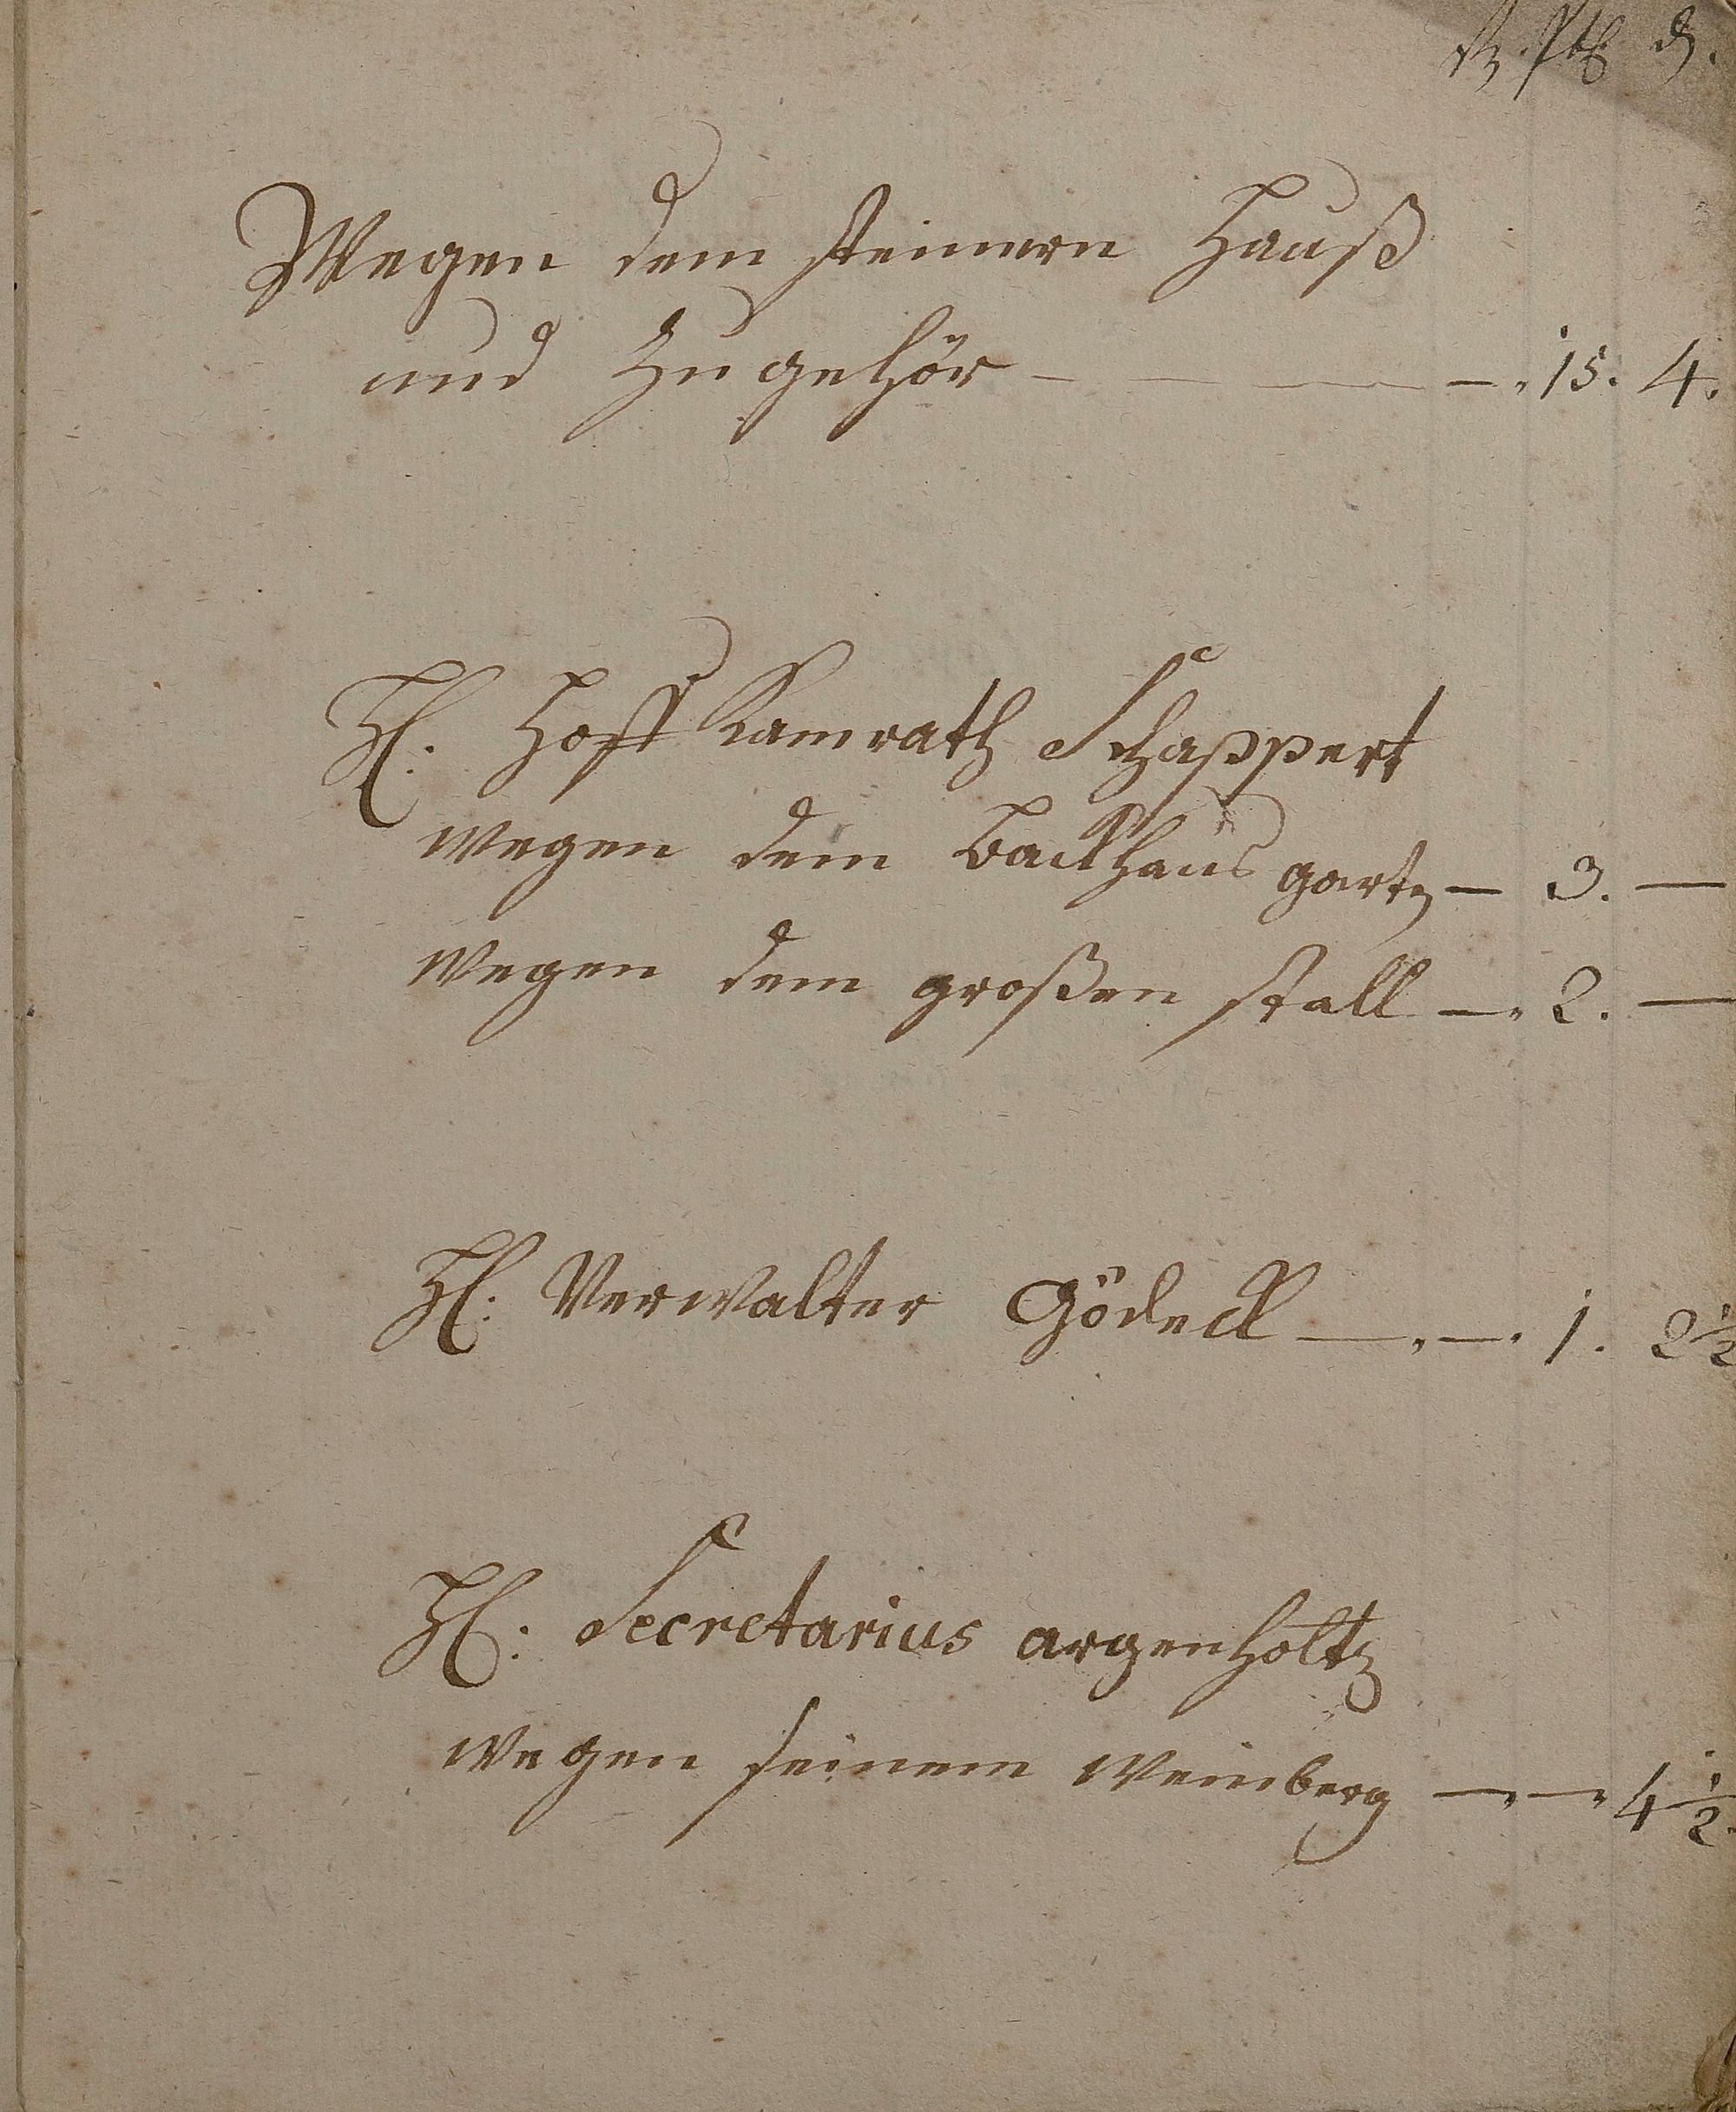 Wegen dem steinern Hauß
und Zu gehör — — —. 15. 4.
H. Hoff Camrath Schappert
wegen dem Backhaus gart — 3. —
wegen dem großen stall —. 2. —
H. Verwalter Gödeck —. —. 1. 2½
H. Secretarius argenholtz
wegen seinem weinberg —. —. 4½.